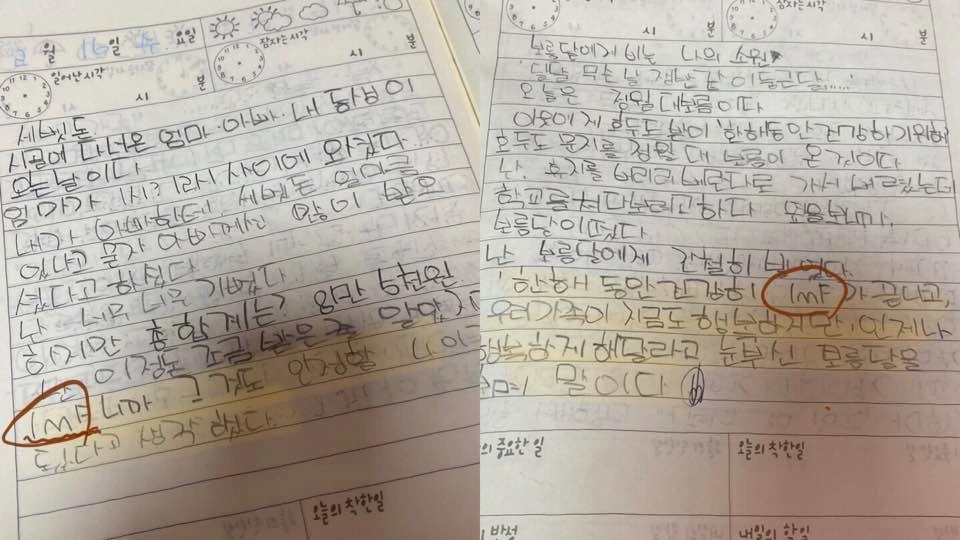 2 월 16일 요일
일어난시각
시
분
잠자는시각
시
분
세벳돈
시골에 다녀온 엄마·아빠·내 동생이
오는 날이다
엄마가 1시? 1라시 사이에 와있다.
내가 아빠한테 세벳돈 얼마를
있냐고 묻자 아빠께서는 많이 받으
셨다고 하셨다
난 너무너무 기뻤다
하지만 총합계는? 8만 5천원
난 이정돈 조금 받은 줄 알았지만
IMF니까 그거도 인정할
된다고 생각했다
오늘의 착한일
잠자는시각
시
분
시
분
보름달에게 비는 나의 소원
달달 무슨 달 쟁반 같이 둥근달.....
오늘은 정월 대보름이다
호두도 문지를 정월 대 보름이 온 것이다
난 휴지를 버리러 베란다로 가서 버렸는데
학교를 쳐다보려고 하다
보름달이 떴다
난 보름달에게 간절히 빌었다
'한해 동안 건강히 IMF가 끝나고,
우리가족이 지금도 행복하지만, 언제나
행복하게 해달라고 눈부신 보름달을
말이다
의 중요한 일
오늘의 착한일
반성
내일의 할일